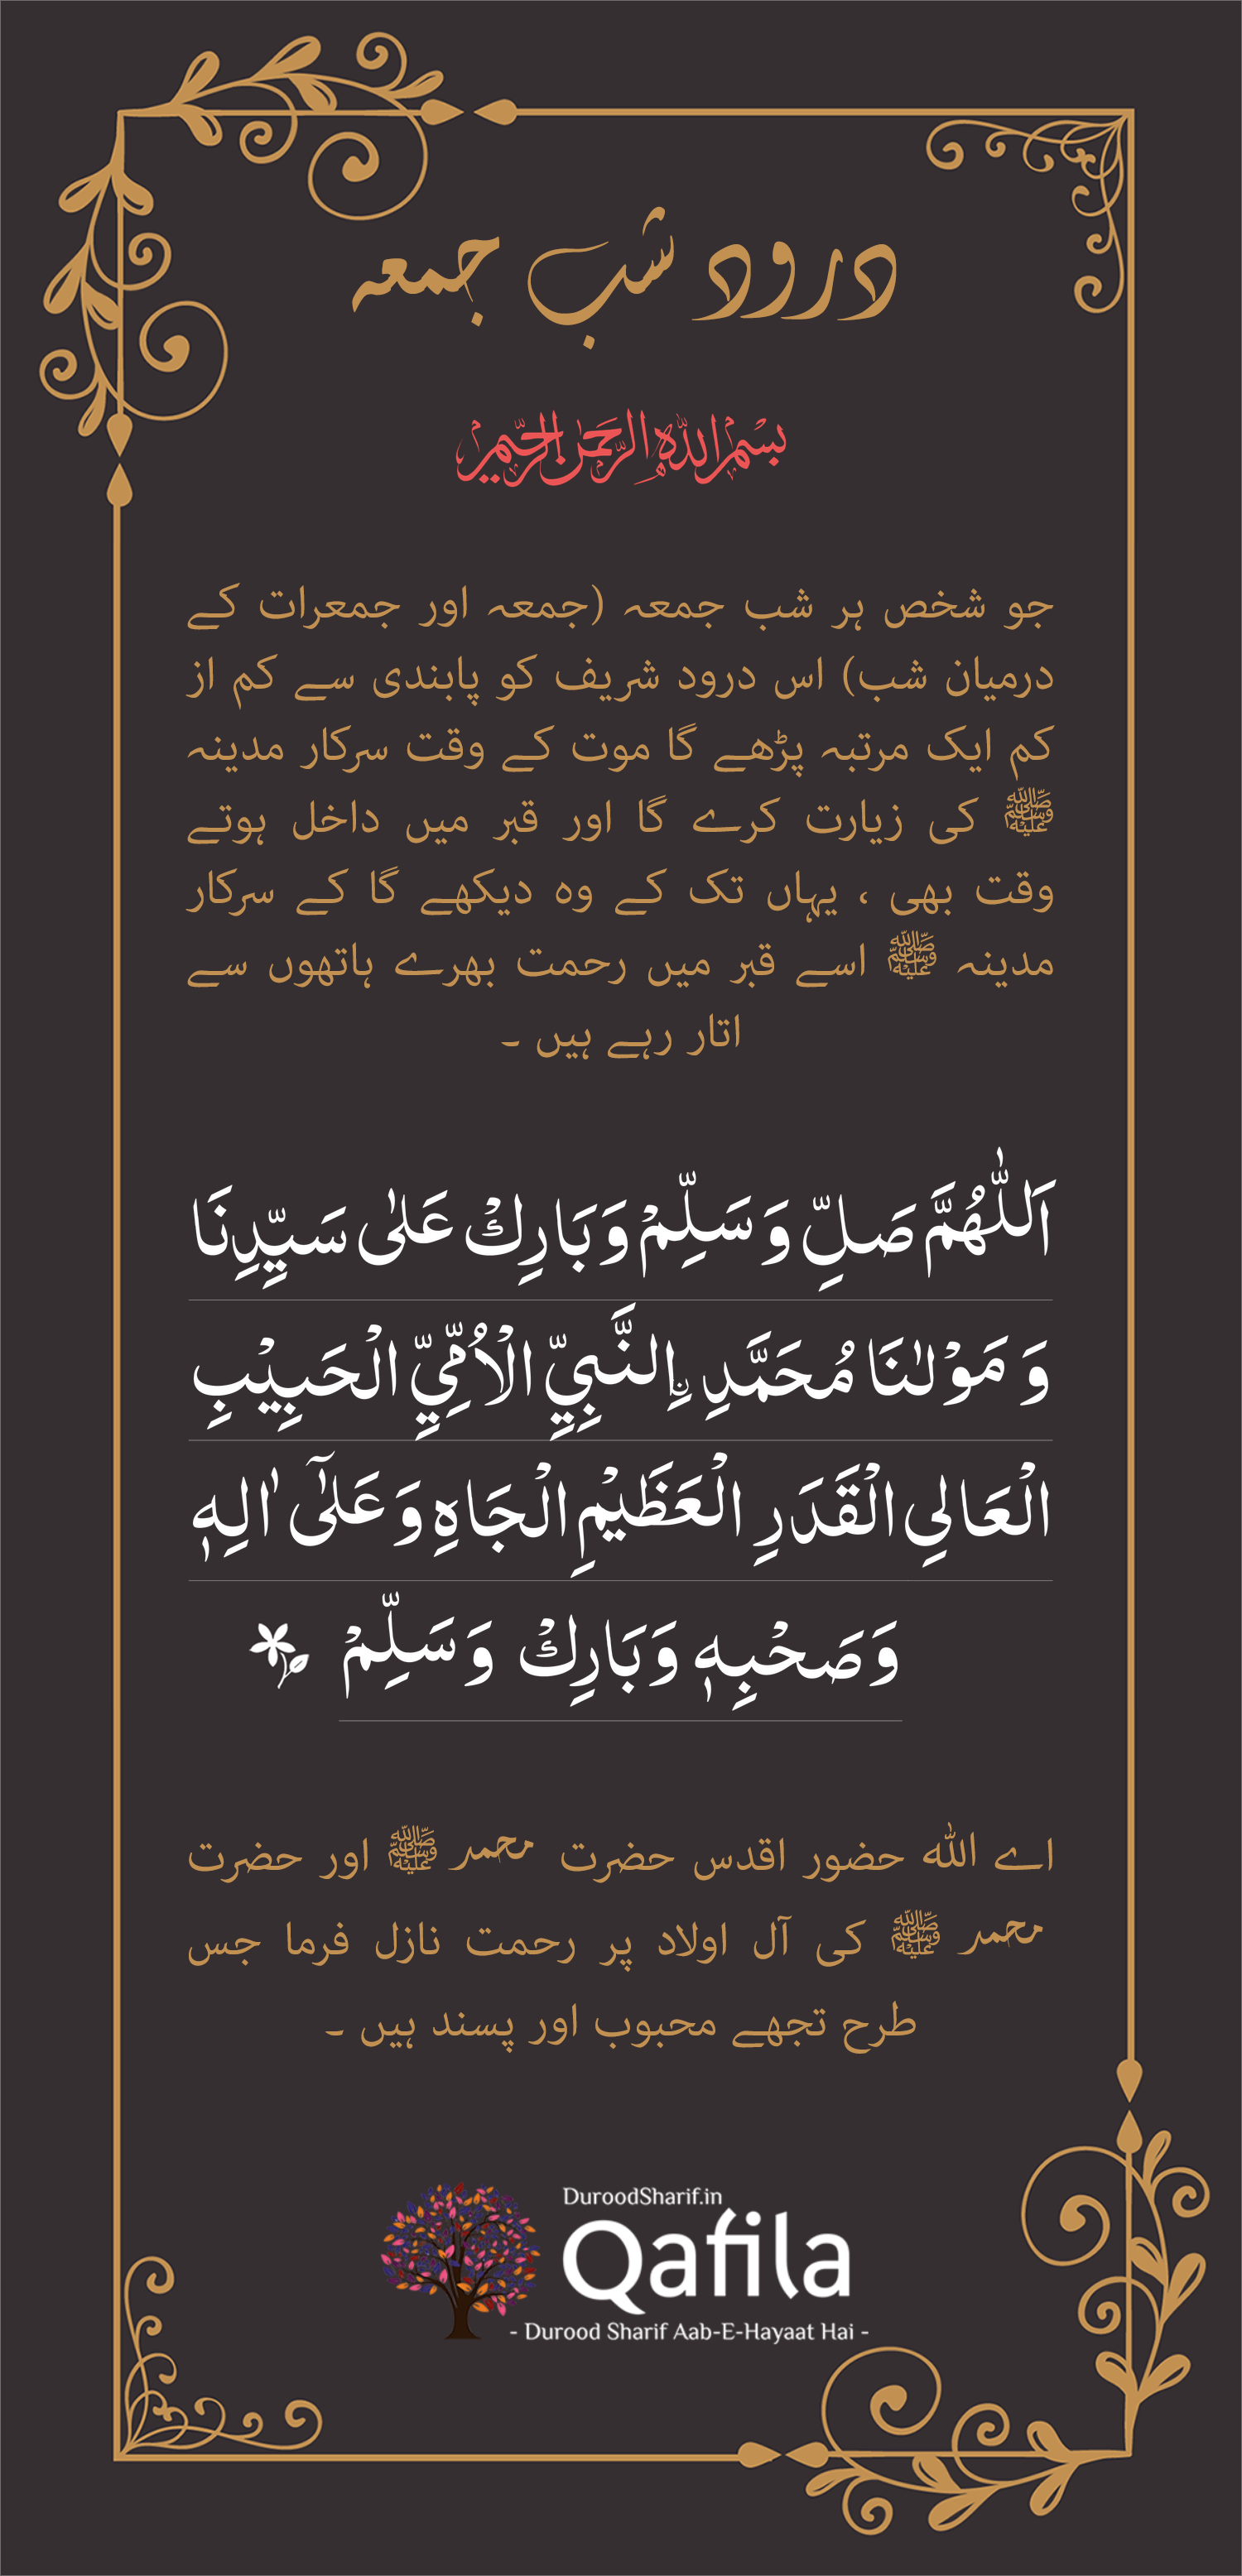 درود شب جمعہ
بسم اللہ الرحمن الرحیم
جو شخص ہر شب جمعہ (جمعہ اور جمعرات کے
درمیان شب) اس درود شریف کو پابندی سے کم از
کم ایک مرتبہ پڑھے گا موت کے وقت سرکار مدینہ
ﷺ کی زیارت کرے گا اور قبر میں داخل ہوتے
وقت بھی ، یہاں تک کے وہ دیکھے گا کے سرکار
مدینہ ﷺ اسے قبر میں رحمت بھرے ہاتھوں سے
اتار رہے ہیں ۔
اَللّٰهُمَّ صَلِّ وَسَلِّمْ وَبَارِكْ عَلٰى سَيِّدِنَا
وَ مَوْلٰنَا مُحَمَّدِ ۨالنَّبِيِّ الْاُمِّيِّ الْحَبِيْبِ
الْعَالِي الْقَدَرِ الْعَظِيْمِ الْجَاهِ وَعَلٰٓى اٰلِهٖ
وَصَحْبِهٖ وَبَارِكْ وَسَلِّمْ
اے اللہ حضور اقدس حضرت محمد ﷺ اور حضرت
محمد ﷺ کی آل اولاد پر رحمت نازل فرما جس
طرح تجھے محبوب اور پسند ہیں ۔
DuroodSharif.in
Qafila
- Durood Sharif Aab-E-Hayaat Hai -